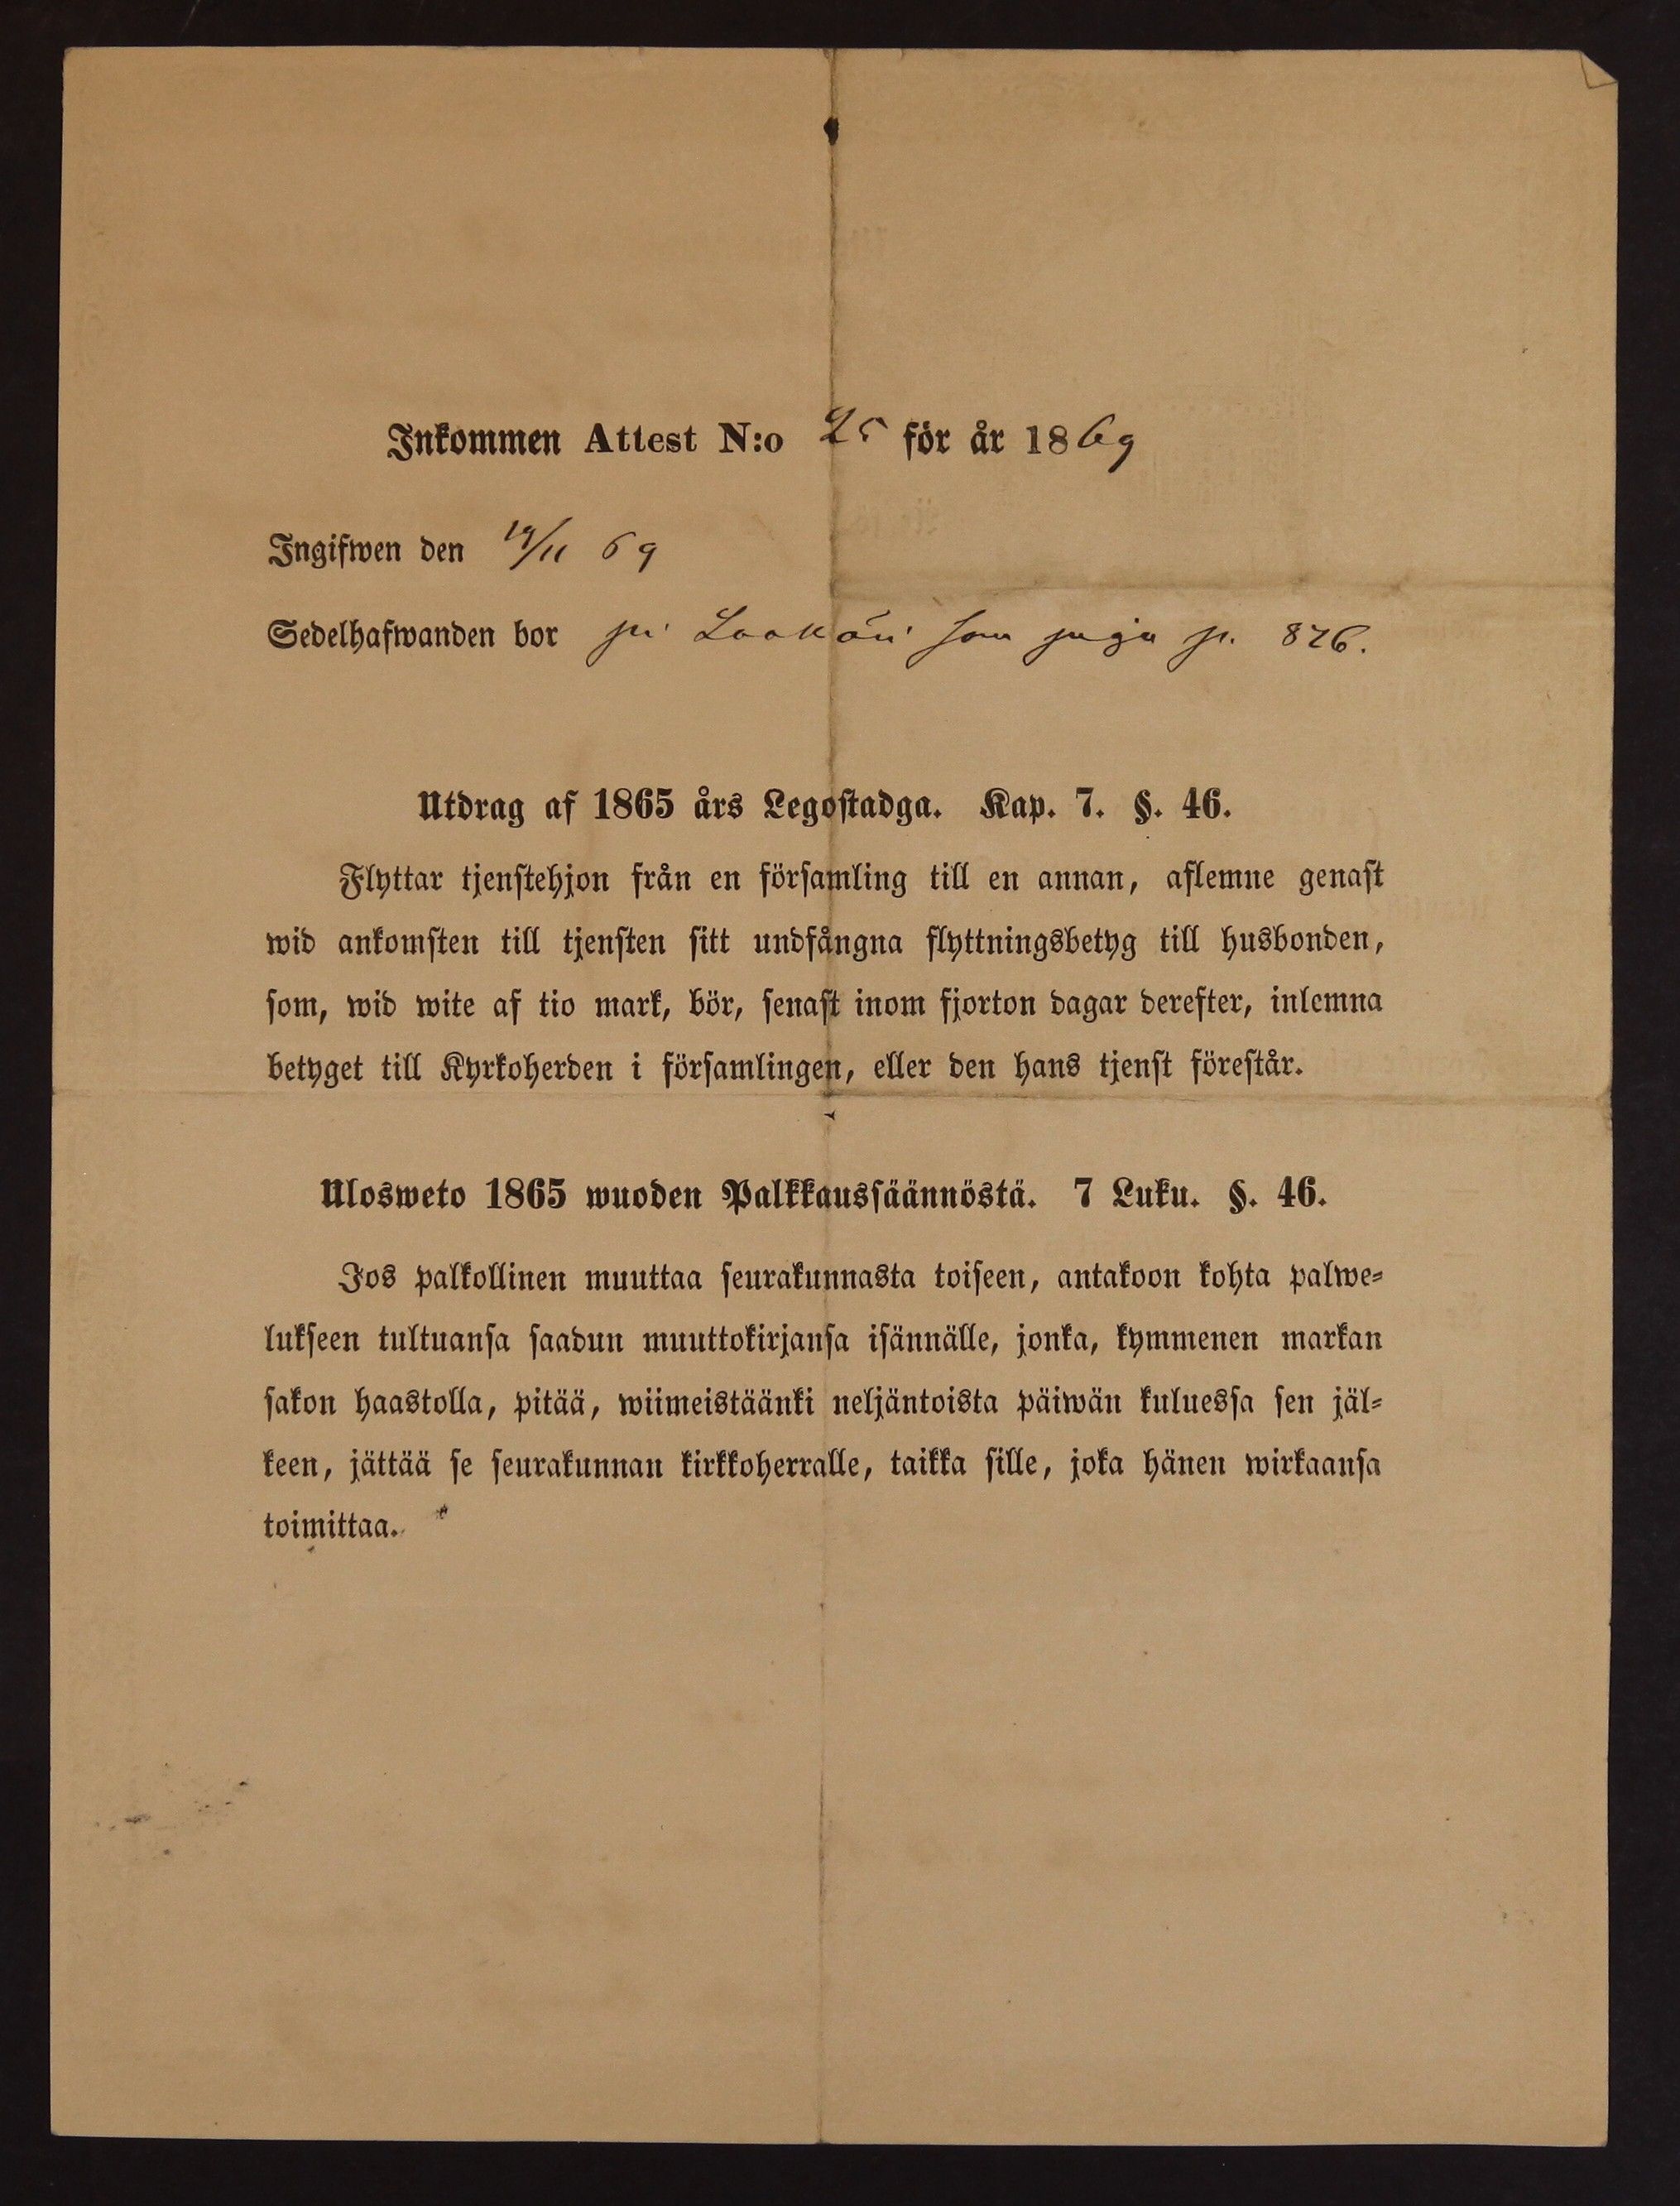 Inkommen Attest N:o 25 för år 1869
Ingifwen den 19/11 69
Sedelhafwanden bor på som piga p. 826.
Utdrag af 1865 års Legostadga. Kap. 7. §. 46.
Flyttar tjenstehjon från en församling till en annan, aflemne genast
wid ankomsten till tjensten sitt undfångna flyttningsbetyg till husbonden,
som, wid wite af tio mark, bör, senast inom fjorton dagar derefter, inlemna
betyget till Kyrkoherden i församlingen, eller den hans tjenst förestår.
Ulosweto 1865 wuoden Palkkaussäännöstä. 7 Luku. §. 46.
Jos palkollinen muuttaa seurakunnasta toiseen, antakoon kohta palwe-
lukseen tultuansa saadun muuttokirjansa isännälle, jonka, kymmenen markan
sakon haastolla, pitää, wiimeistäänki neljäntoista päiwän kuluessa sen jäl-
keen, jättää se seurakunnan kirkkoherralle, taikka sille, joka hänen wirkaansa
toimittaa.